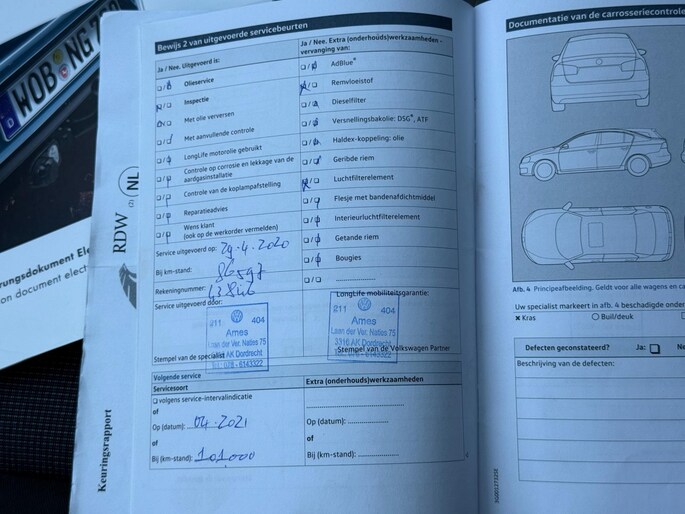 WOB NG
rungsdokument Ele
on document elect
RDW
NL
Keuringsrapport
Bewijs 2 van uitgevoerde servicebeurten
Ja / Nee. Uitgevoerd is:
Olieservice
Inspectie
Met olie verversen
Met aanvullende controle
LongLife motorolie gebruikt
Controle op corrosie en lekkage van de
aardgasinstallatie
Controle van de koplampafstelling
Reparatieadvies
Wens klant
(ook op de werkorder vermelden)
Service uitgevoerd op: 29-4-2020
Bij km-stand: 86597
Rekeningnummer:
Service uitgevoerd door:
211 404
Ames
Laan der Ver. Naties 75
3316 AK Dordrecht
Tel. 078 - 6143322
Stempel van de specialist
Ja / Nee. Extra (onderhouds)werkzaamheden -
vervanging van:
AdBlue®
Remvloeistof
Dieselfilter
Versnellingsbakolie: DSG®, ATF
Haldex-koppeling: olie
Geribde riem
Luchtfilterelement
Flesje met bandenafdichtmiddel
Interieurluchtfilterelement
Getande riem
Bougies
LongLife mobiliteitsgarantie:
211 404
Ames
Laan der Ver. Naties 75
3316 AK Dordrecht
Tel. 078 - 6143322
Stempel van de Volkswagen Partner
Volgende service
Servicesoort
volgens service-intervalindicatie
of
Op (datum): 04-2021
of
Bij (km-stand): 101000
Extra (onderhouds)werkzaamheden
Op (datum):
of
Bij (km-stand):
Documentatie van de carrosseriecontrole
Afb. 4 Principeafbeelding. Geldt voor alle wagens en ca
Uw specialist markeert in afb. 4 beschadigde onder
Kras
Buil/deuk
Defecten geconstateerd? Ja: Ne
Beschrijving van de defecten: